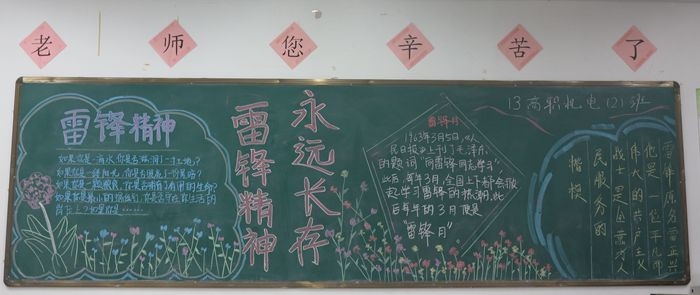 老师您辛苦了
雷锋精神
如果你是一滴水,你是否滋润了一寸土地?
如果你是一线阳光,你是否照亮了一分黑暗?
如果你是一颗粮食,你是否哺育了有用的生命?
如果你是最小的螺丝钉,你是否守在你生活的
岗位上?如果你是……
永远长存
雷锋精神
雷锋日
1963年3月5日,《人
民日报》上刊了毛泽东
的题词"向雷锋同志学习"
此后,每年3月,全国上下都会掀
起学习雷锋的热潮,此
后每年的3月便是
"雷锋日"
13高职机电(2)班
雷锋原名雷正兴
他是一位平凡而
伟大的共产主义
战士是全心为人
民服务的
楷模